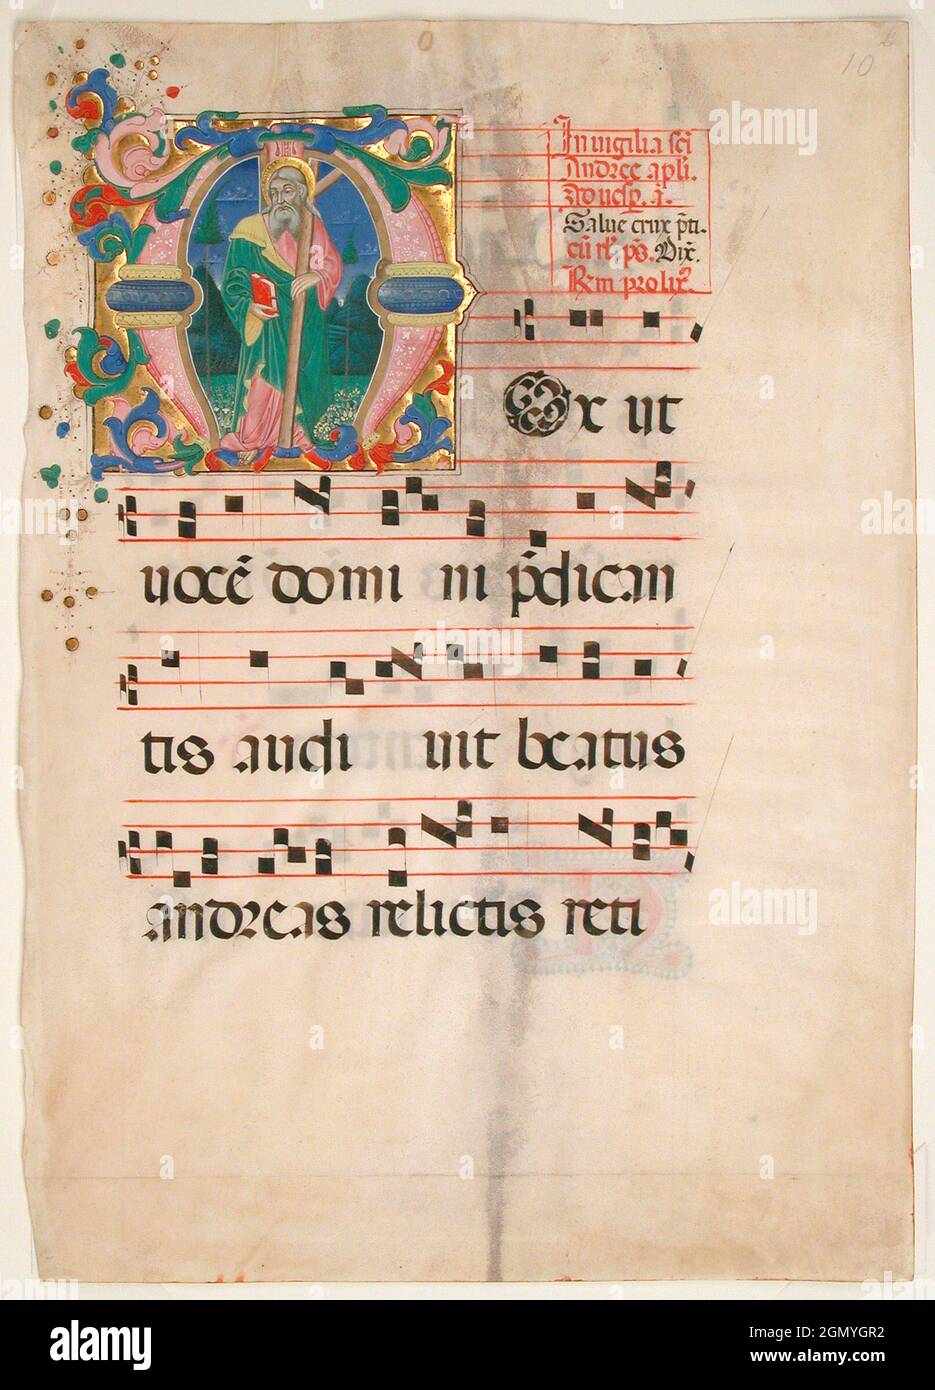 10
In uigilia sci
Andree apli.
Ad uesp. a.
Salue crux p̄ti-
cū rl. ps. Dix.
Rm prolix.
Ox ut
uocē domi ni p̄dican
tis audi uit beatus
andreas relictis reti
alamy
Image ID: 2GMYGR2
www.alamy.com